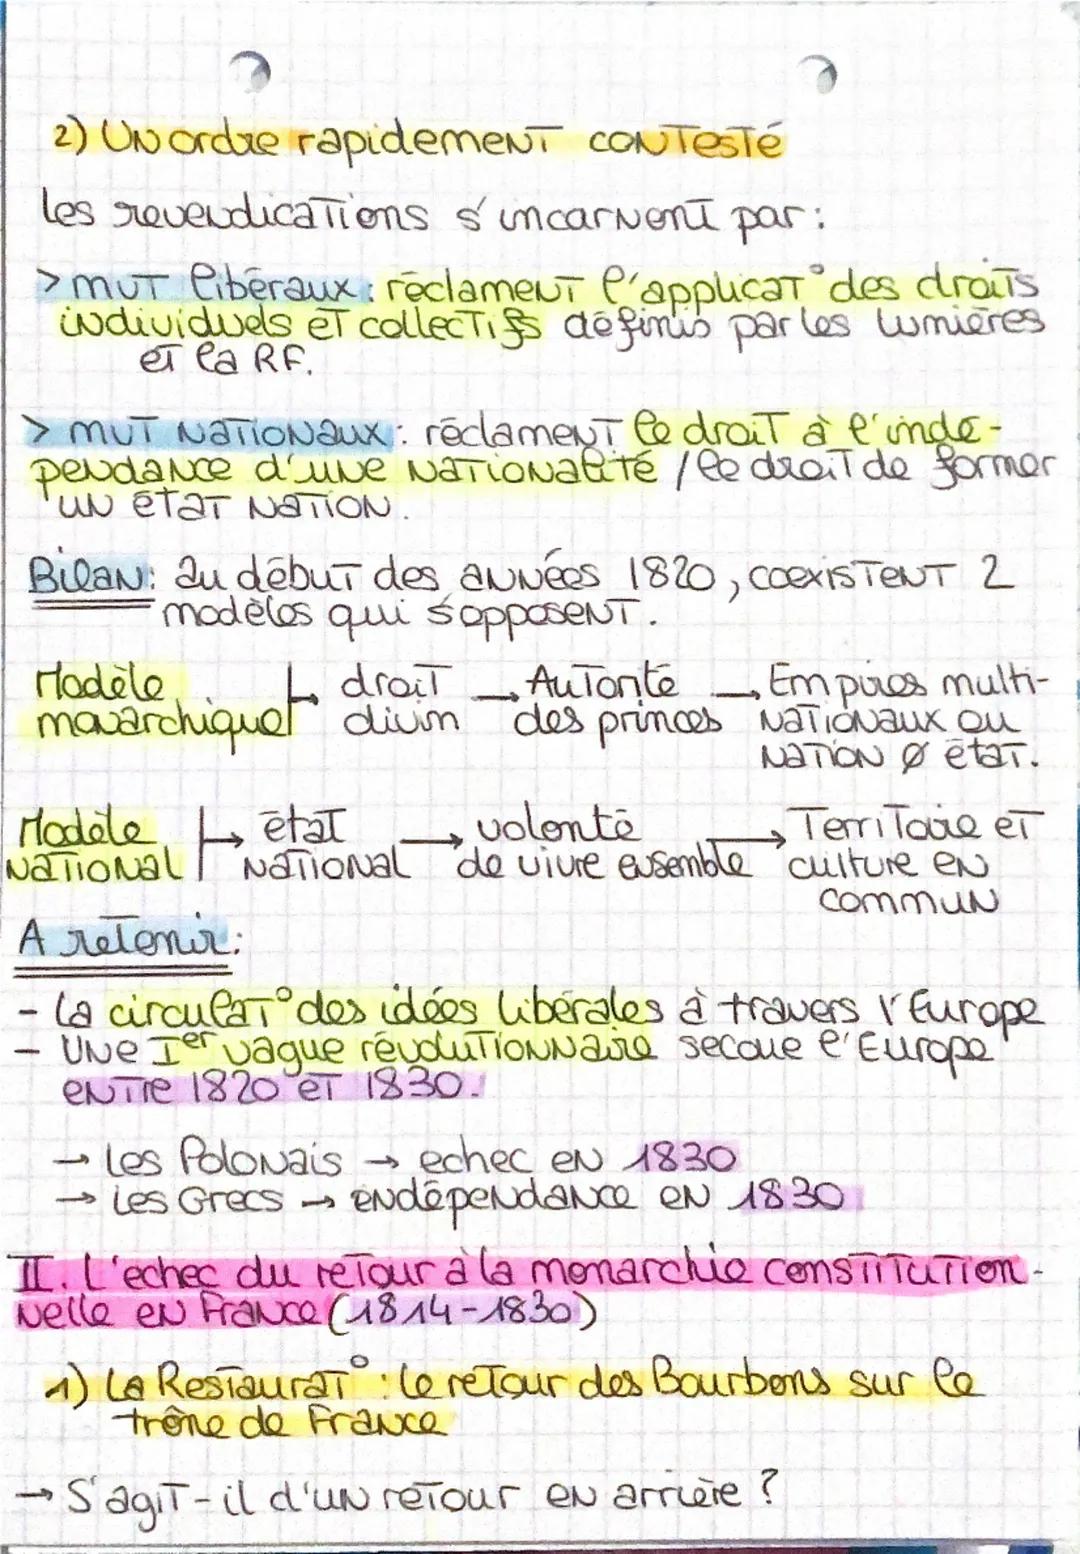 2) UN ordre rapidement contesté
les revendications s'incarnent par :
> mvt libéraux : réclament l'applicat° des droits
individuels et collectifs définis par les lumières
et la RF.
> mvt nationaux : réclament le droit à l'indé-
pendance d'une nationalité / le droit de former
un état nation.
Bilan : au début des années 1820, coexistent 2
modèles qui s'opposent.
Modèle monarchique → droit divin → Autorité des princes → Empires multi-nationaux ou nation Ø état.
Modèle national → état national → volonté de vivre ensemble → Territoire et culture en commun
A retenir :
- la circulat° des idées libérales à travers l'Europe
- Une Ier vague révolutionnaire secoue l'Europe
entre 1820 et 1830.
→ les Polonais → echec en 1830
→ les Grecs → endépendance en 1830
II. L'echec du retour à la monarchie constitution-
nelle en France (1814-1830)
1) La Restaurat° : le retour des Bourbons sur le
trône de France
→ S'agit-il d'un retour en arrière ?